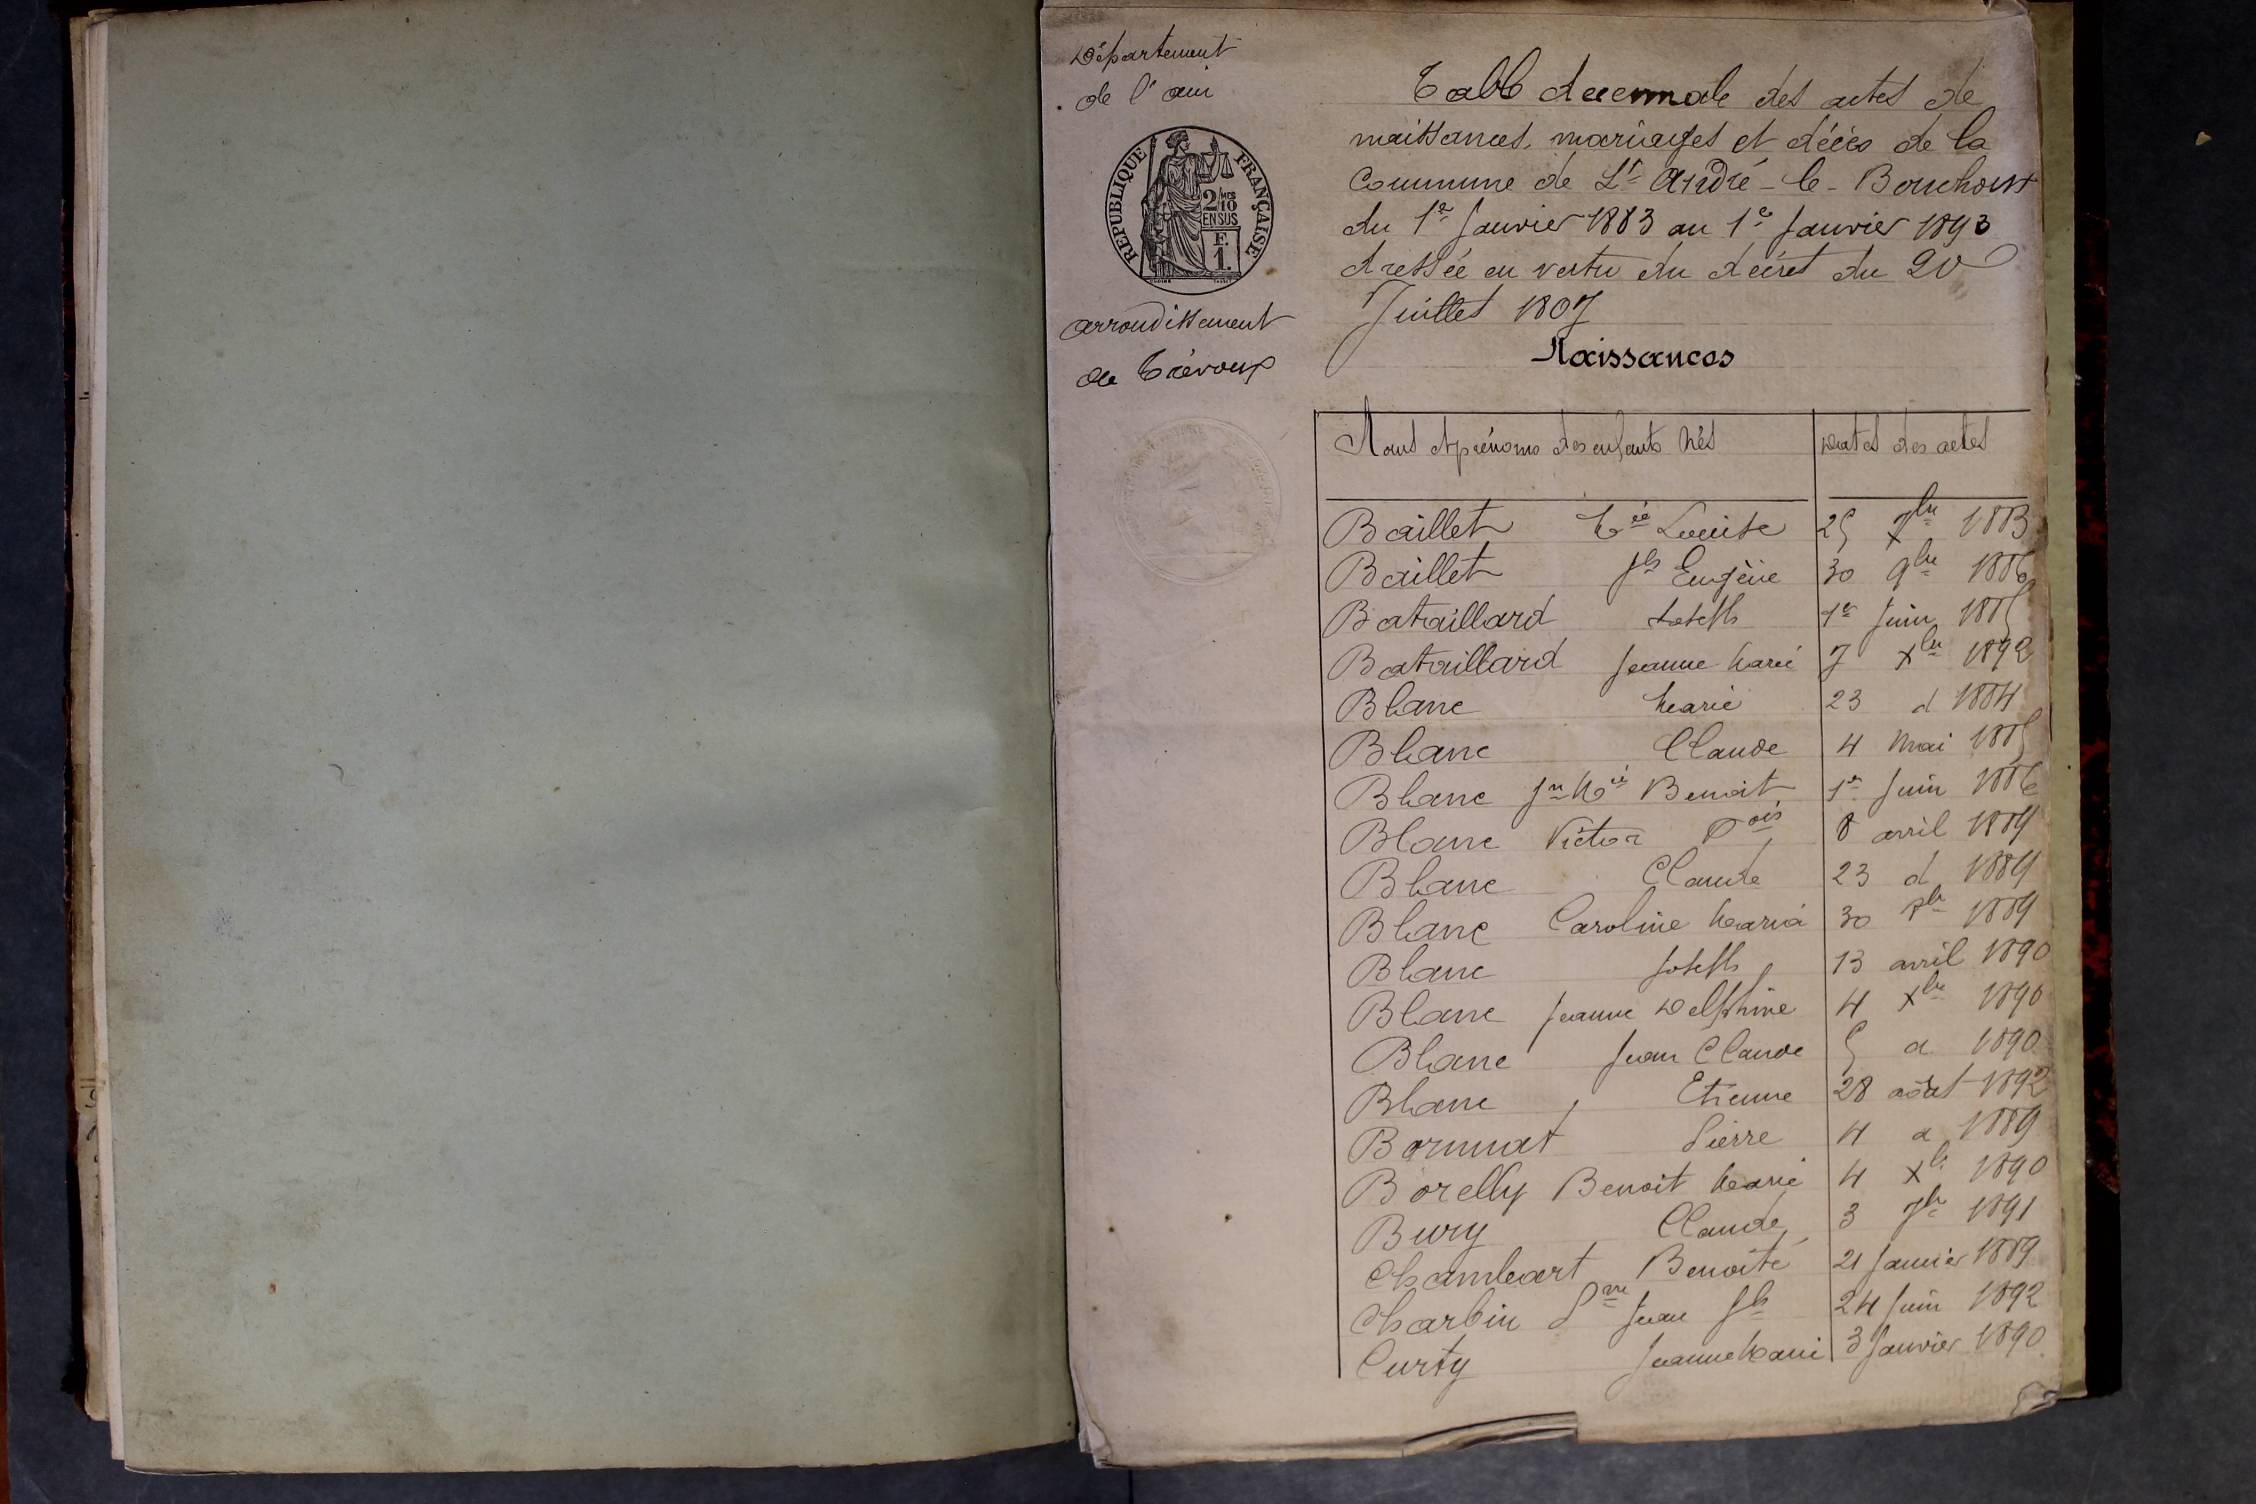 Département
de l'ain
REPUBLIQUE FRANÇAISE
2/MES
10
EN SUS
F.
1.
arrondissement
de Trévoux
Table decennale des actes de
naissances, mariages et décès de la
Commune de St André-le-Bouchoux
du 1er Janvier 1883 au 1er Janvier 1893
dressée en vertu du décret du 20
Juillet 1807
Naissances
Noms et prénoms des enfants nés Dates des actes
Baillet Mie Louise 25 7bre 1883
Baillet Jh Eugène 30 9bre 1886
Bataillard Joseph 1er Juin 1885
Bataillard Jeanne Marie 7 Xbre 1892
Blanc Marie 23 d 1884
Blanc Claude 4 Mai 1885
Blanc Jn Mie Benoit 1er Juin 1886
Blanc Victor Fois 8 avril 1889
Blanc Claude 23 d 1889
Blanc Caroline Maria 30 8bre 1889
Blanc Joseph 13 avril 1890
Blanc Jeanne Delphine 4 Xbre 1890
Blanc Jean Claude 5 d 1890
Blanc Etienne 28 août 1892
Pierre 4 d 1889
Borelly Benoit Marie 4 Xbre 1890
Bury Claude 3 7bre 1891
Chambart Benoîte 21 Janvier 1889
Charbin Pre Jean Jh 24 Juin 1892
Curty Jeanne Marie 3 Janvier 1890